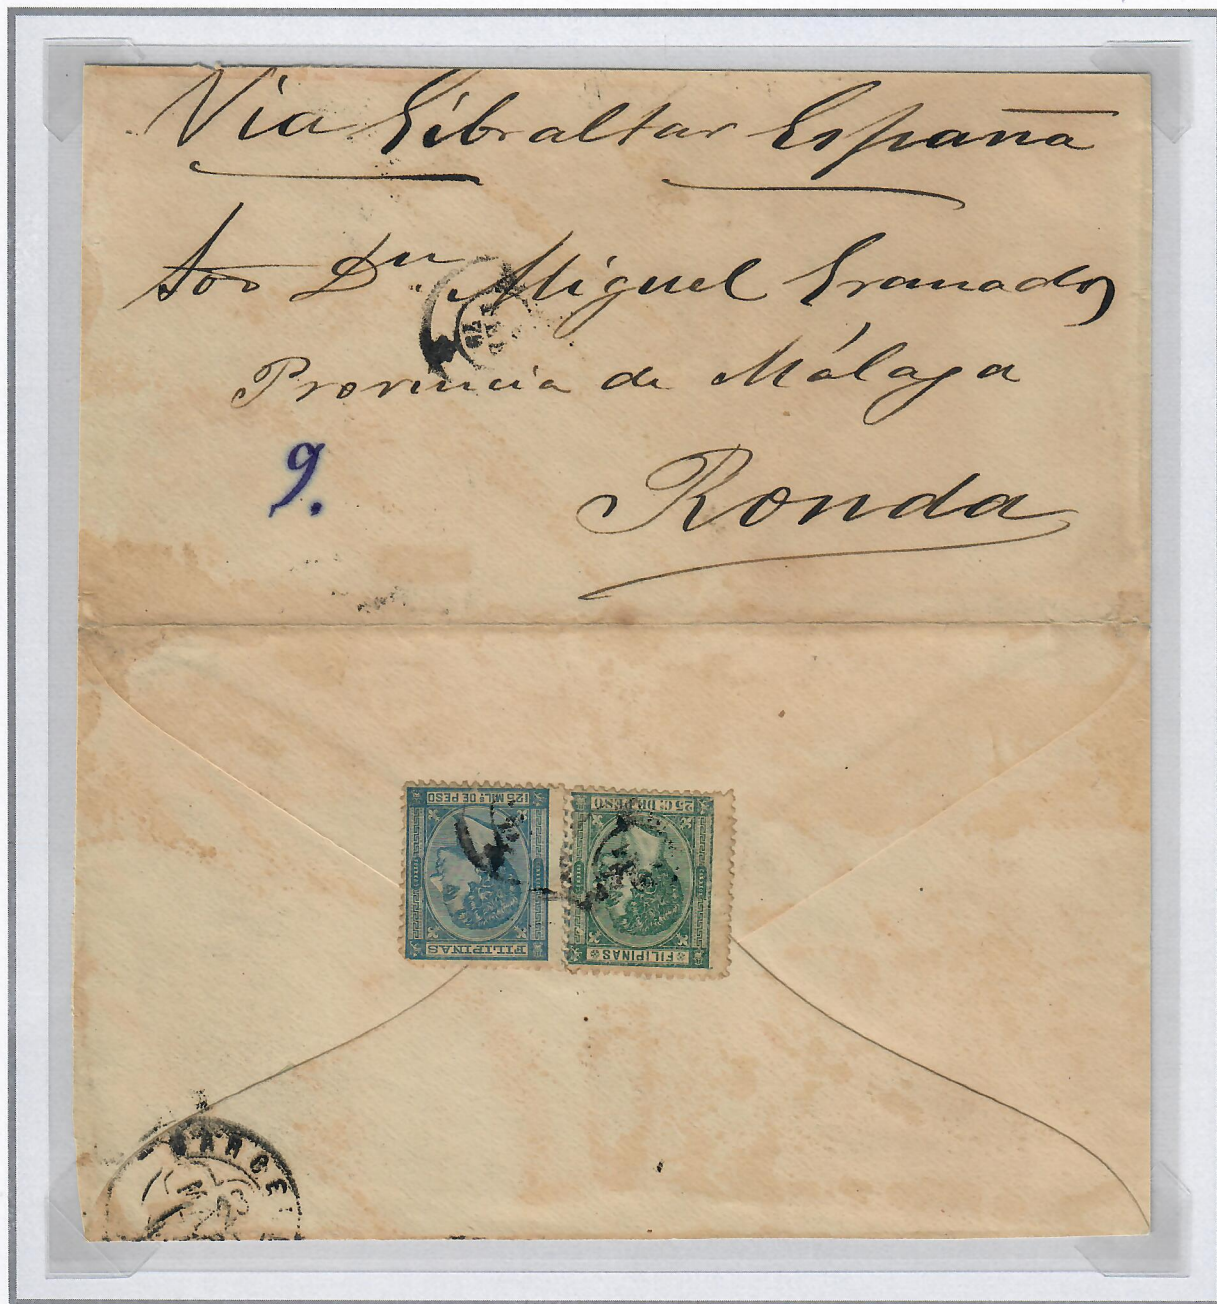 Via Gibraltar España
Dn Miguel Granados
Provincia de Málaga
9.
Ronda
125 MILs. DE PESO
FILIPINAS
25 Cs. DE PESO
FILIPINAS
BARCE